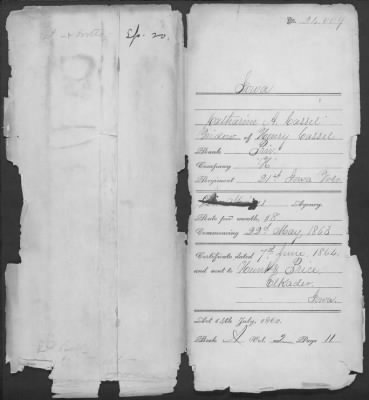 Ef. 20.
No. 24.
Iowa
Katharine A. Cassel
Widow of Henry Cassel
Rank Priv
Company "K"
Regiment 21st Iowa Vols
Agency
Rate per month, $8
Commencing 22d May 1863
Certificate dated 7th June, 1864.
and sent to Price
Elkader.
Iowa.
Act 14th July, 1862.
Book Vol. 2 Page 11